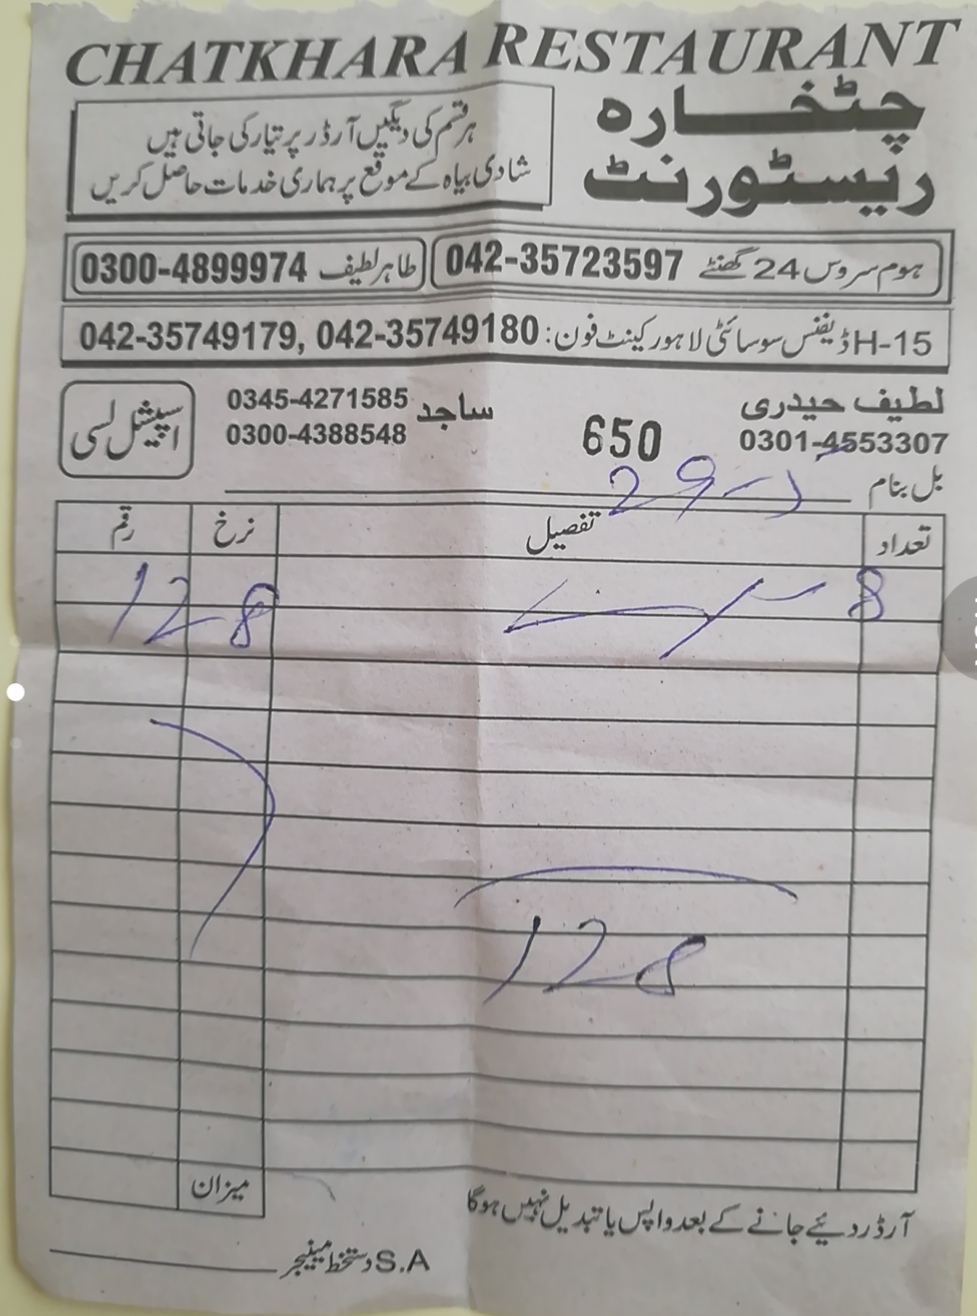 CHATKHARA RESTAURANT
چٹخارہ
ریسٹورنٹ
ہر قسم کی دیگیں آرڈر پر تیار کی جاتی ہیں
شادی بیاہ کے موقع پر ہماری خدمات حاصل کریں
ہوم سروس 24 گھنٹے 042-35723597
طاہر لطیف 0300-4899974
H-15 ڈیفنس سوسائٹی لاہور کینٹ فون: 042-35749179, 042-35749180
لطیف حیدری
0301-4553307
650
ساجد 0345-4271585
0300-4388548
اسپیشل لسی
بل بنام 29-
تعداد تفصیل نرخ رقم
8 128
128
میزان
آرڈر دیئے جانے کے بعد واپس یا تبدیل نہیں ہوگا
S.A دستخط مینیجر